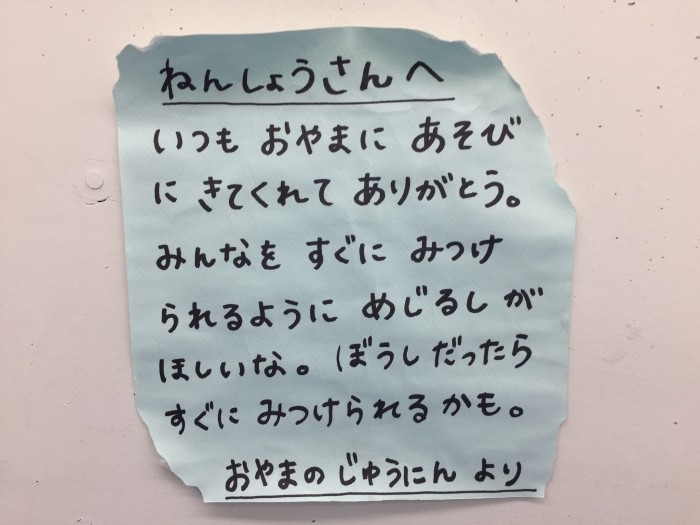 ねんしょうさんへ
いつも おやまに あそび
に きてくれて ありがとう。
みんなを すぐに みつけ
られるように めじるしが
ほしいな。ぼうしだったら
すぐに みつけられるかも。
おやまの じゅうにん より